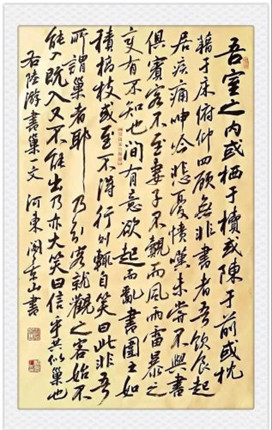 吾室之内或栖于櫝或陳于前或枕
藉于床俯仰四顧無非書者吾飲食起
居疾痛呻吟悲憂憤嘆未嘗不與書
俱賓客不至妻子不覿而風雨雷雹之
變有不知也間有意欲起而亂書圍之如
積槁枝或至不得行則輒自笑曰此非吾
所謂巢者耶乃引客就觀之客始不
能入既入又不能出乃亦大笑曰信乎其似巢也
右陸游書巢一文 河東 東山書